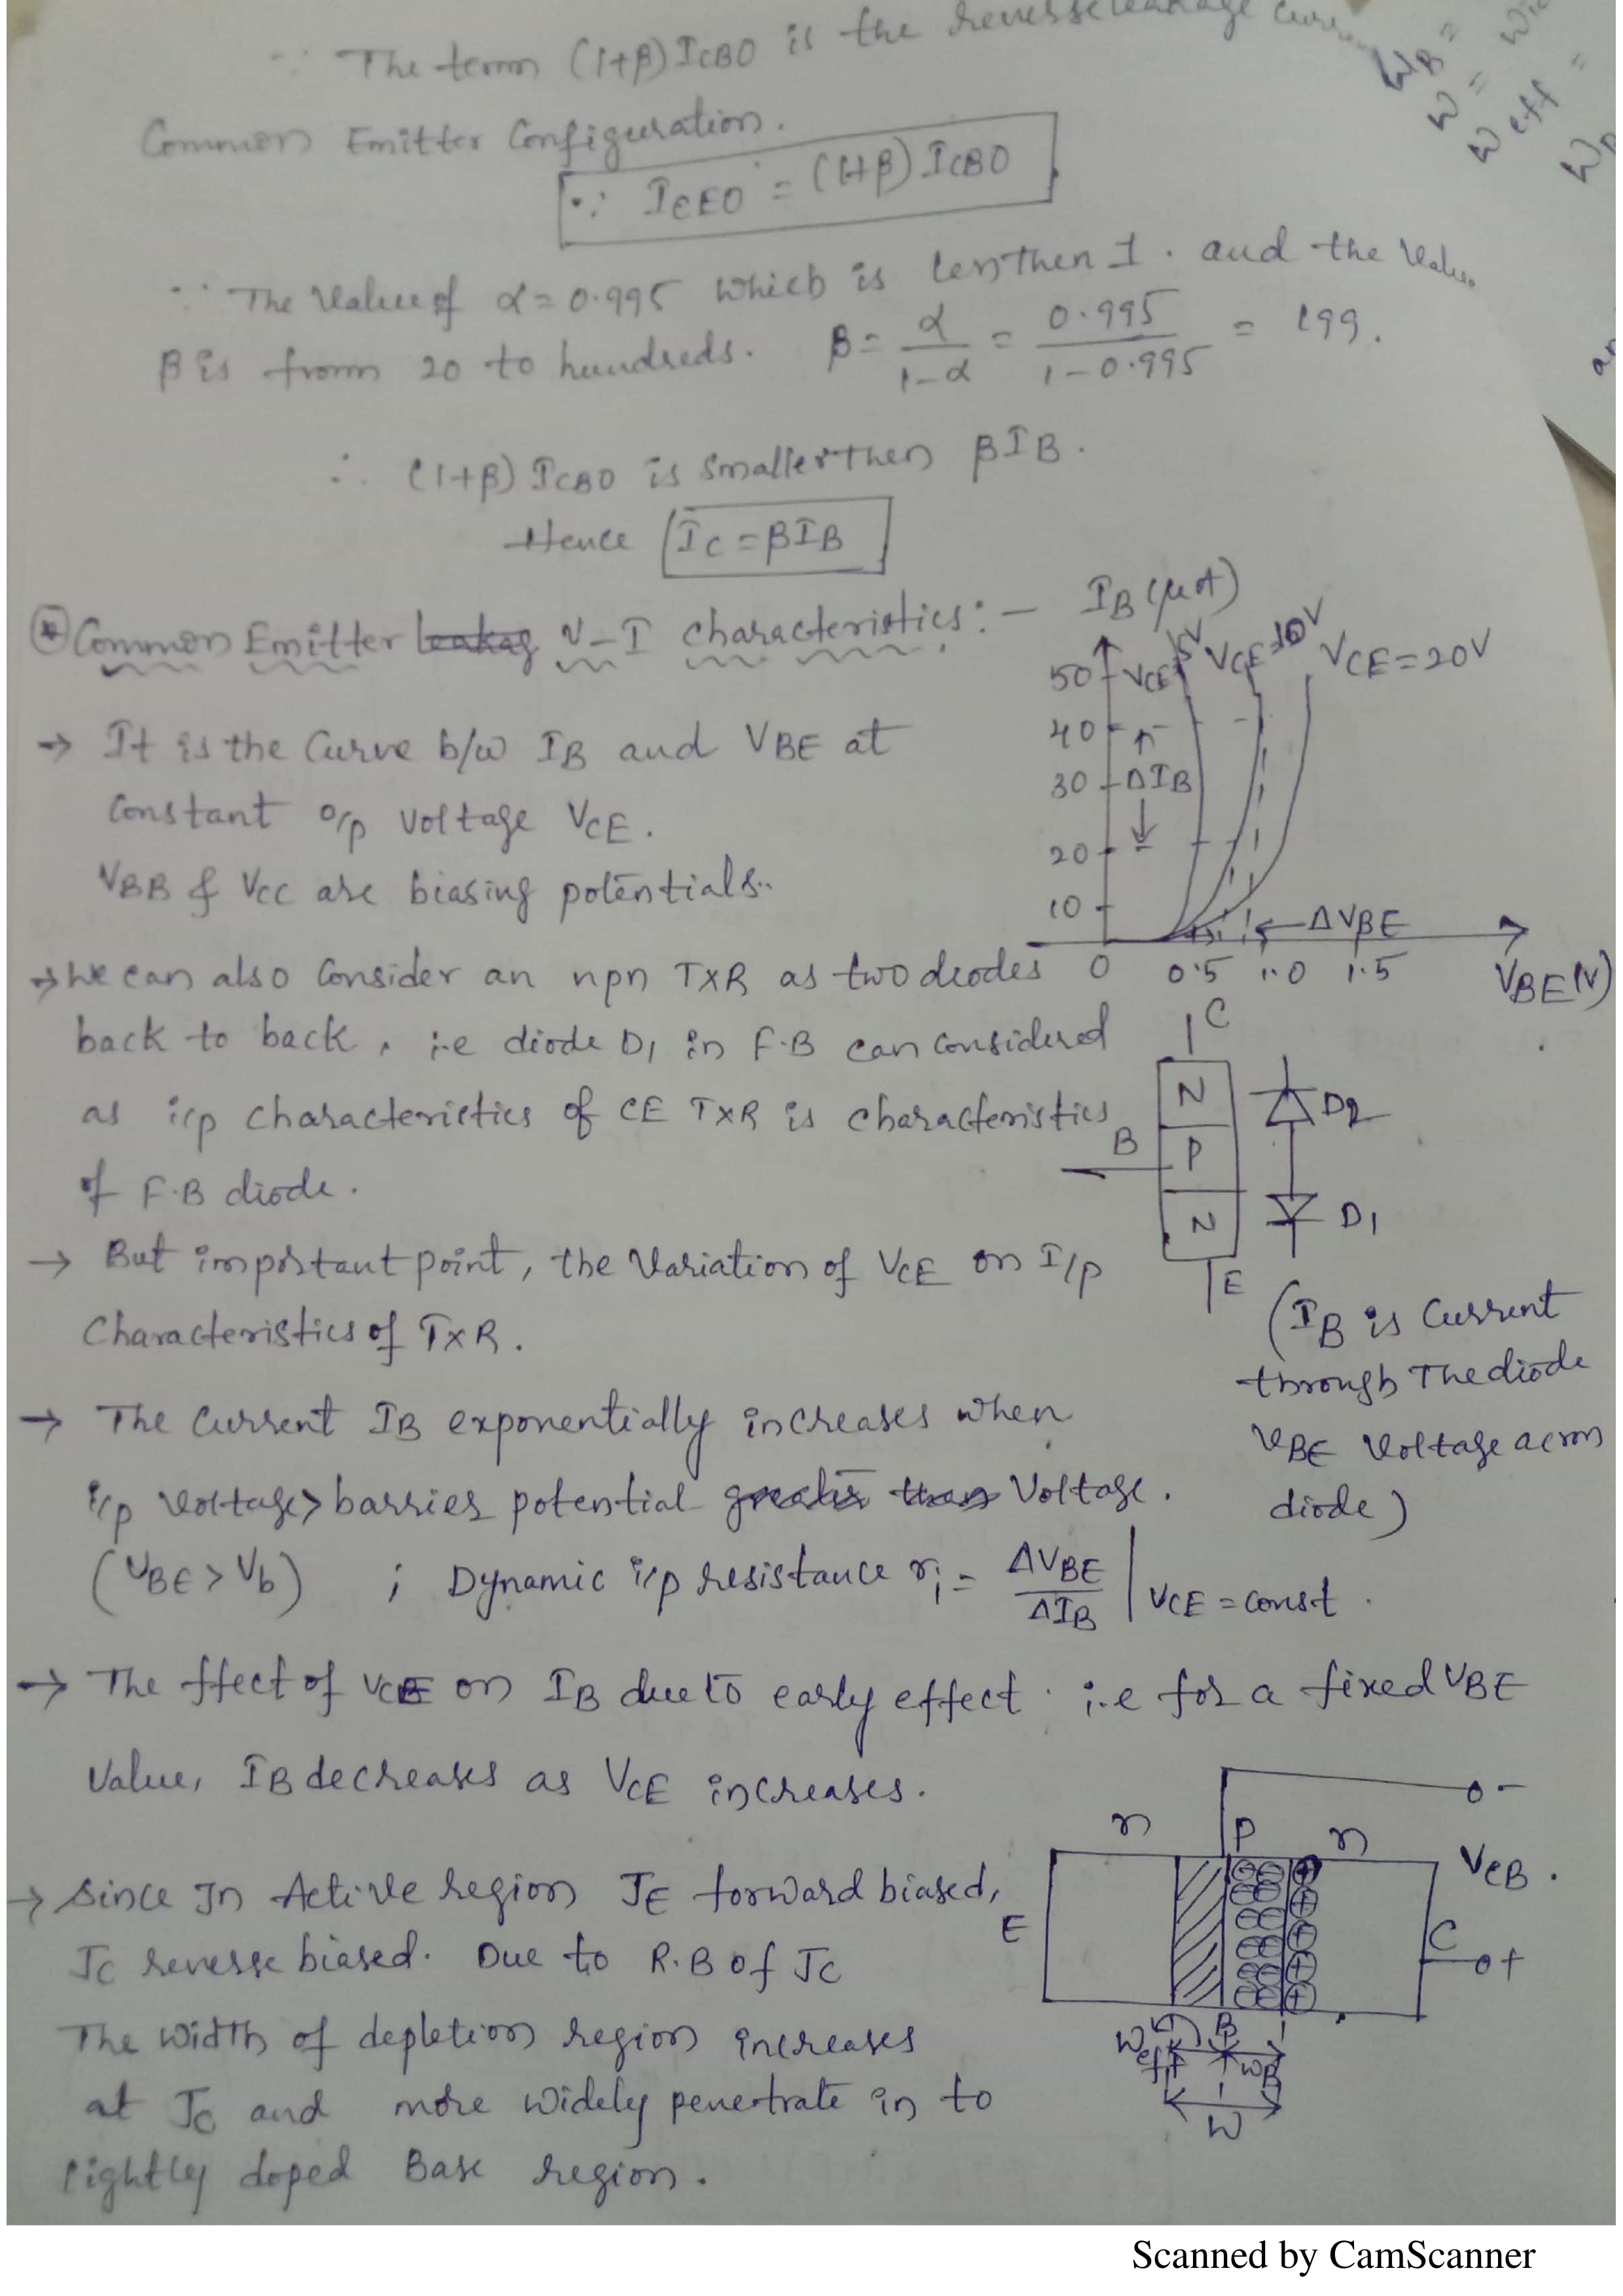 ∵ The term (1+β)ICBO is the reverse leakage
WB =
W =
Weff =
Common Emitter Configuration.
∵ ICEO = (1+β) ICBO
∵ The value of α = 0.995 which is lessthen 1. and the value
β is from 20 to hundreds. β = α/1-α = 0.995/1-0.995 = 199.
∴ (1+β) ICBO is smaller then βIB.
Hence IC = βIB
* Common Emitter leakag V-I characteristics:-
IB (μA)
VCE=5V VCE=10V VCE=20V
50
40
30 ΔIB
20
10
ΔVBE
0 0.5 1.0 1.5 VBE(V)
→ It is the curve b/w IB and VBE at
constant o/p voltage VCE.
VBB & VCC are biasing potentials..
→ We can also consider an npn TXR as two diodes
back to back, i.e diode D1 in F.B can considered
as i/p characteristics of CE TXR is characteristics
of F.B diode.
C
N
B P
N
E
D2
D1
(IB is current
through The diode
VBE voltage across
diode)
→ But important point, the variation of VCE on I/p
characteristics of TXR.
→ The current IB exponentially increases when
i/p voltage > barrier potential greater than voltage.
(VBE > Vb) ; Dynamic i/p resistance ri = ΔVBE/ΔIB | VCE = const.
→ The ffect of VCE on IB due to early effect. i.e for a fixed VBE
value, IB decreases as VCE increases.
→ Since In Active region JE forward biased,
JC reverse biased. Due to R.B of JC
The width of depletion region increases
at JC and more widely penetrate in to
lightly doped Base region.
n P n
E
C
-
VCB.
+
B
Weff WB
W
Scanned by CamScanner